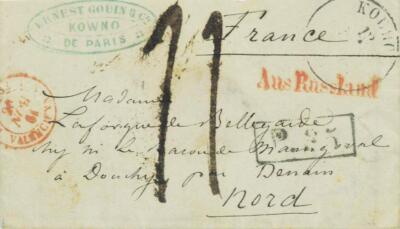 ERNEST GOUIN & CIE
KOWNO
DE PARIS
France
KOWNO
Aus Russland
11
VALENCIENNES
Madame
Laforgue de Bellegarde
le Baron de
à Douchy par Denain
Nord